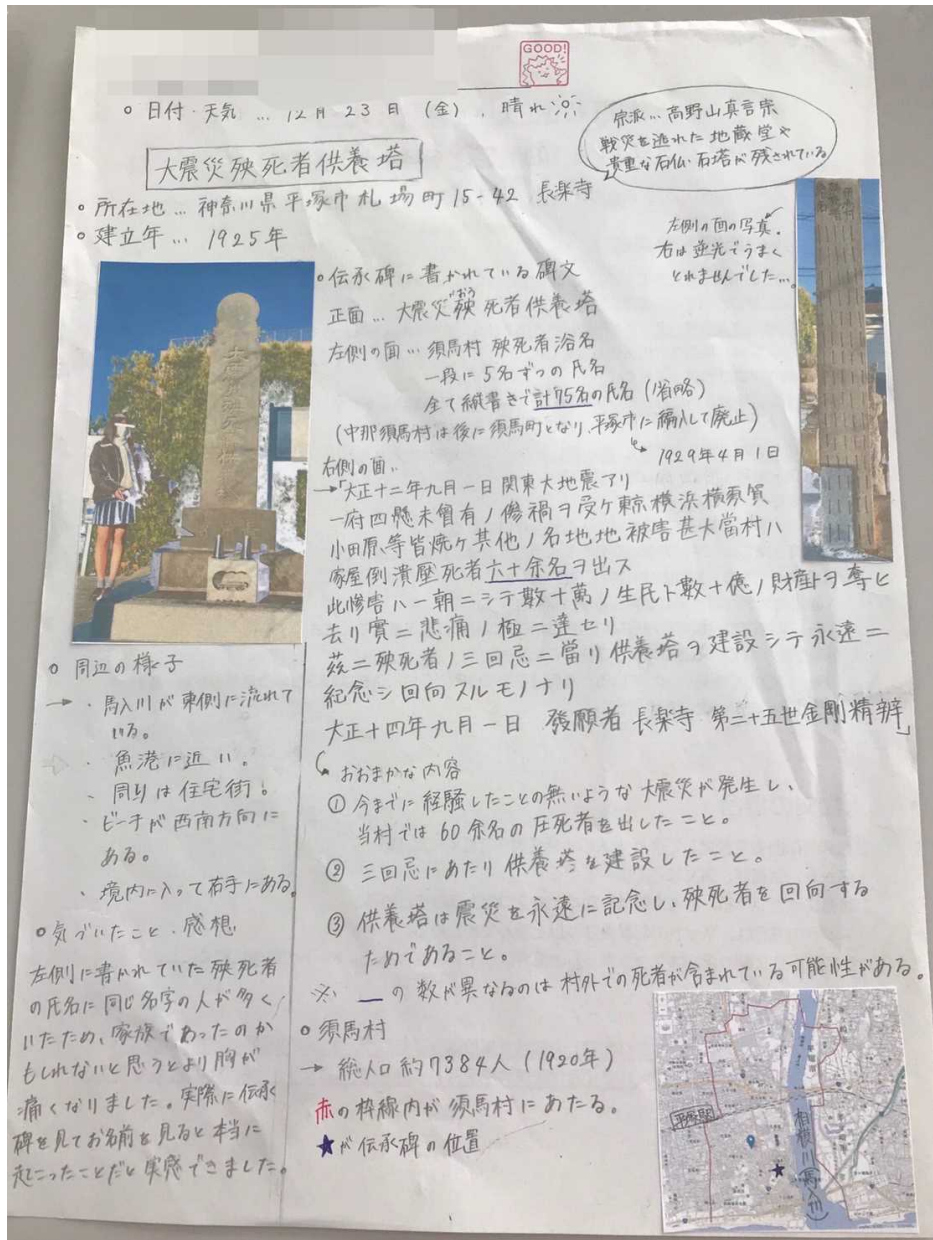 GOOD!
○ 日付・天気 … 12月 23日 (金) 、晴れ
宗派… 高野山真言宗
戦災を逃れた 地蔵堂や
貴重な石仏、石塔が残されている
大震災殃死者供養塔
○ 所在地 … 神奈川県平塚市札場町15-42 長楽寺
○ 建立年 … 1925年
左側の面の写真。
右は逆光でうまく
とれませんでした…。
○ 伝承碑に書かれている碑文
正面 … 大震災殃死者供養塔
おう
左側の面 … 須馬村 殃死者浴名
一段に5名ずつの氏名
全て縦書きで計75名の氏名 (省略)
(中那須馬村は後に須馬町となり、平塚市に編入して廃止)
1929年4月1日
右側の面、
→「大正十二年九月一日関東大地震アリ
一府四懸未曾有ノ惨禍ヲ受ケ東京横浜横須賀
小田原、等皆焼ケ其他ノ名地地被害甚大當村ハ
家屋倒潰壓死者六十余名ヲ出ス
此惨害ハ一朝ニシテ數十萬ノ生民ト數十億ノ財産トヲ奪ヒ
去リ實ニ悲痛ノ極ニ達セリ
茲ニ殃死者ノ三回忌ニ當リ供養塔ヲ建設シテ永遠ニ
紀念シ回向スルモノナリ
大正十四年九月一日 發願者 長楽寺 第二十五世金剛精辨」
おおまかな内容
① 今までに経験したことの無いような大震災が発生し、
当村では60余名の圧死者を出したこと。
② 三回忌にあたり供養塔を建設したこと。
③ 供養塔は震災を永遠に記念し、殃死者を回向する
ためであること。
※ __の数が異なるのは村外での死者が含まれている可能性がある。
○ 須馬村
→ 総人口約7384人 (1920年)
赤の枠線内が須馬村にあたる。
★が伝承碑の位置
○ 周辺の様子
→ ・馬入川が東側に流れて
いる。
・魚港に近い。
・周りは住宅街。
・ビーチが西南方向に
ある。
・境内に入って右手にある。
○ 気づいたこと・感想
左側に書かれていた殃死者
の氏名に同じ名字の人が多く
いたため、家族であったのか
もしれないと思うとより胸が
痛くなりました。実際に伝承
碑を見てお名前を見ると本当に
起こったことだと実感できました。
平塚駅
相模川(馬入川)